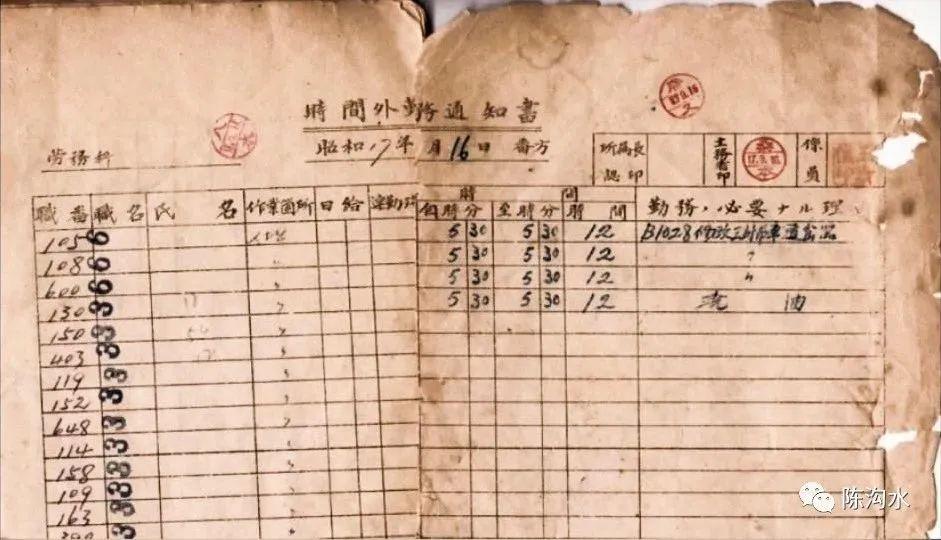 時間外勤務通知書
昭和17年 月16日 番方
労務科
所属長認印
主務者印
係員
17.9.16
職番 職名 氏名 作業箇所 日給 時間 勤務ノ必要ナル理
自時分 至時分 時間
105 6 5 30 5 30 12 B1028
108 6 〃 5 30 5 30 12 〃
600 6 〃 5 30 5 30 12 〃
130 3 〃 5 30 5 30 12 油
150 3 〃
403 3 〃
119 3 〃
152 3 〃
648 3 〃
114 3 〃
158 3 〃
109 3 〃
163 3 〃
3 〃
陈沟水